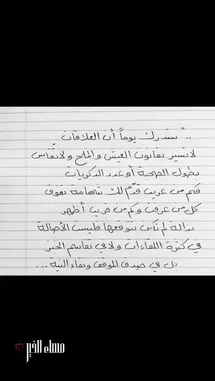 .." ستدرك يوماً أن العلاقات
لا تسير بقانون العيش والملح ولا تُقاس
بطول الصحبة أو عدد الذكريات
فكم من غريب قدّم لك شهامة تفوق
كل من عرفت وكم من قريب أظهر
نذالة لم تكن تتوقعها فليست الأصالة
في كثرة اللقاءات ولا في تقاسم الخبز
بل في صدق الموقف ونقاء النية ...
مساء الخير